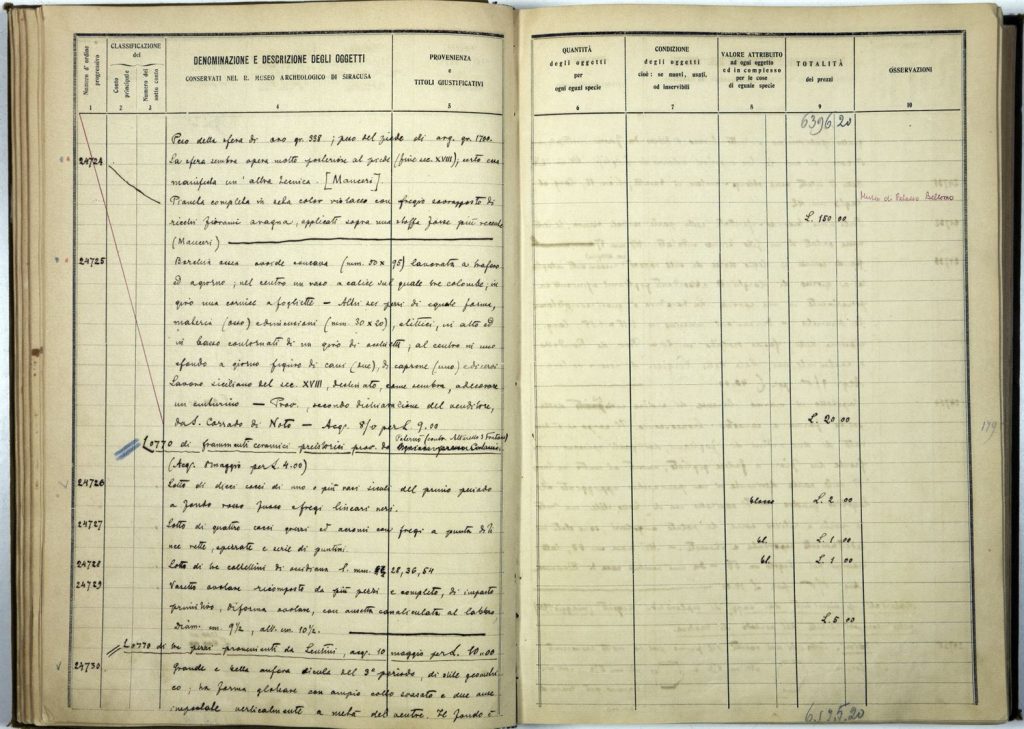 Numero d'ordine progressivo
CLASSIFICAZIONE
del
Conto principale
Numero del sotto conto
DENOMINAZIONE E DESCRIZIONE DEGLI OGGETTI
CONSERVATI NEL R. MUSEO ARCHEOLOGICO DI SIRACUSA
PROVENIENZA
e
TITOLI GIUSTIFICATIVI
1 2 3 4 5
Peso della sfera di oro gr. 338; peso del piede di arg. gr. 1700.
24724 La sfera sembra opera molto posteriore al piede (fine sec. XVIII); certo essa
manifesta un'altra tecnica. [Mauceri].
Pianeta completa in seta color violaceo con fregio sovrapposto di
ricchi applicati sopra una stoffa forse più recente
(Mauceri)
24725 ovoide concava (mm. 50 x 95) lavorata a traforo
ed a giorno; nel centro un vaso a calice sul quale tre colombe; in
giro una cornice a fogliette. — Altri sei pezzi di eguale forma,
materia (osso) e dimensioni (mm. 30 x 20), elittici, in alto ed
in basso contornati di un giro di; al centro in uno
sfondo a giorno figure di cani (due), di caprone (uno) e di cervi
Lavoro siciliano del sec. XVIII, destinato, come sembra, a decorare
un centurino — Prov., secondo dichiarazione del venditore,
da S. Corrado di Noto — Acq. 8/V per L. 9.00
LOTTO di frammenti ceramici preistorici prov. da Palermo
(Acq. 8 maggio per L. 4.00)
24726 Lotto di dieci cocci di uno o più vasi siculi del primo periodo
a fondo rosso fusco e fregi lineari neri.
24727 Lotto di quattro cocci grezzi ed aeromi con fregi a punta di li
nee rette, spezzate e serie di puntini.
24728 Lotto di tre coltellini di ossidiana l. mm. 28, 36, 54
24729 Vasetto ovolare ricomposto da più pezzi e completo, di impasto
primitivo, di forma ovolare, con ansetta canaliculata al labbro,
Diam. cm. 9½, alt. cm. 10½.
LOTTO di tre pezzi provenienti da Lentini, acq. 10 maggio per L. 10.00
24730 Grande e bella anfora sicula del 3º periodo, di stile geometri
co; ha forma globare con ampio collo svasato e due anse
impostate verticalmente a metà del ventre. Il fondo è
QUANTITÀ
degli oggetti
per
ogni eguai specie
CONDIZIONE
degli oggetti
cioè: se nuovi, usati,
od inservibili
VALORE ATTRIBUITO
ad ogni oggetto
ed in complesso
per le cose
di eguale specie
TOTALITÀ
dei prezzi
OSSERVAZIONI
6 7 8 9 10
6396 20
Museo di Palazzo Bellomo
L. 150 00
L. 20 00
179
L. 2 00
L. 1 00
L. 1 00
L. 5 00